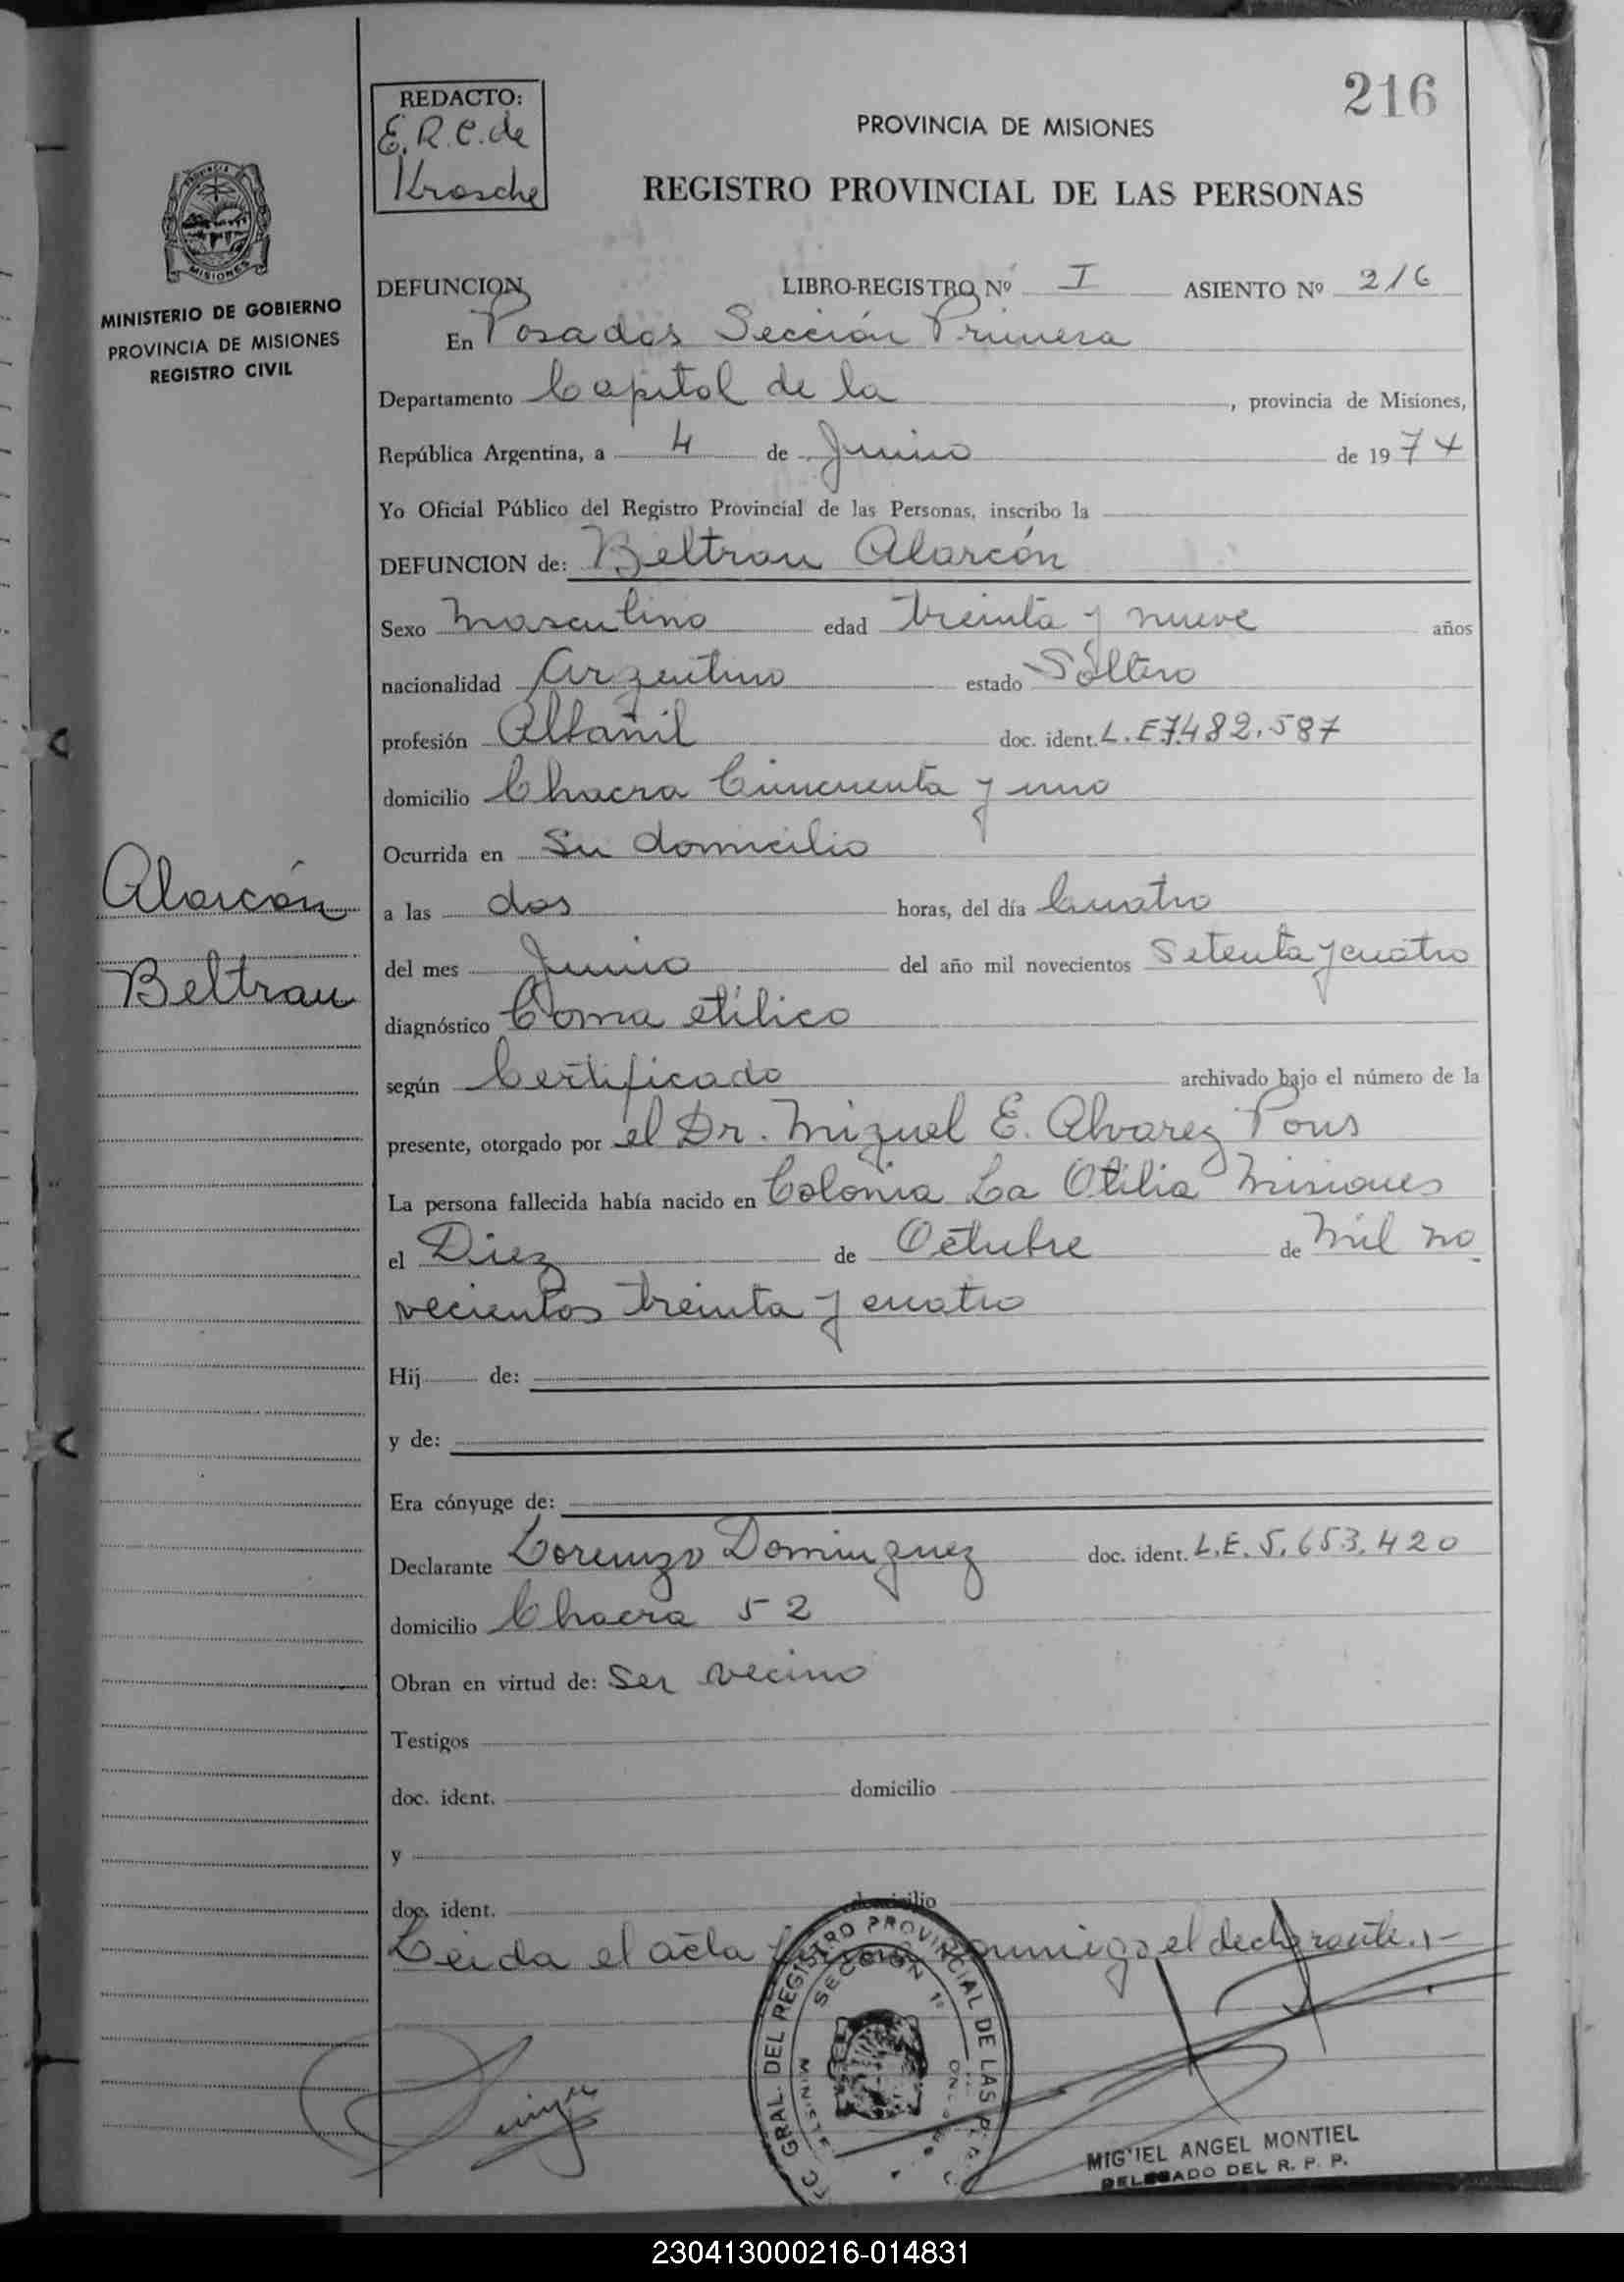 216
REDACTO:
E. R. C. de
Krasche
PROVINCIA DE MISIONES
REGISTRO PROVINCIAL DE LAS PERSONAS
MISIONES
MINISTERIO DE GOBIERNO
PROVINCIA DE MISIONES
REGISTRO CIVIL
DEFUNCION LIBRO-REGISTRO Nº I ASIENTO Nº 216
En Posadas Sección Primera
Departamento Capital de la, provincia de Misiones,
República Argentina, a 4 de Junio de 1974
Yo Oficial Público del Registro Provincial de las Personas, inscribo la
DEFUNCION de: Beltran Alarcón
Sexo masculino edad treinta y nueve años
nacionalidad Argentino estado Soltero
profesión Albañil doc. ident. L.E 7.482.587
domicilio Chacra Cincuenta y uno
Ocurrida en Su domicilio
a las dos horas, del día Cuatro
del mes Junio del año mil novecientos Setenta y cuatro
diagnóstico Coma etílico
según Certificado archivado bajo el número de la
presente, otorgado por el Dr. Miguel E. Alvarez Pons
La persona fallecida había nacido en Colonia La Otilia Misiones
el Diez de Octubre de Mil no
vecientos treinta y cuatro
Hij de:
y de:
Era cónyuge de:
Declarante Lorenzo Dominguez doc. ident. L.E. 5.653.420
domicilio Chacra 52
Obran en virtud de: Ser vecino
Testigos
doc. ident. domicilio
y
doc. ident. domicilio
Leida el acta conmigo el declarante.-
Alarcón
Beltran
GRAL. DEL REGISTRO PROVINCIAL DE LAS
SECCIÓN 1ª
MIGUEL ANGEL MONTIEL
DELEGADO DEL R. P. P.
230413000216-014831